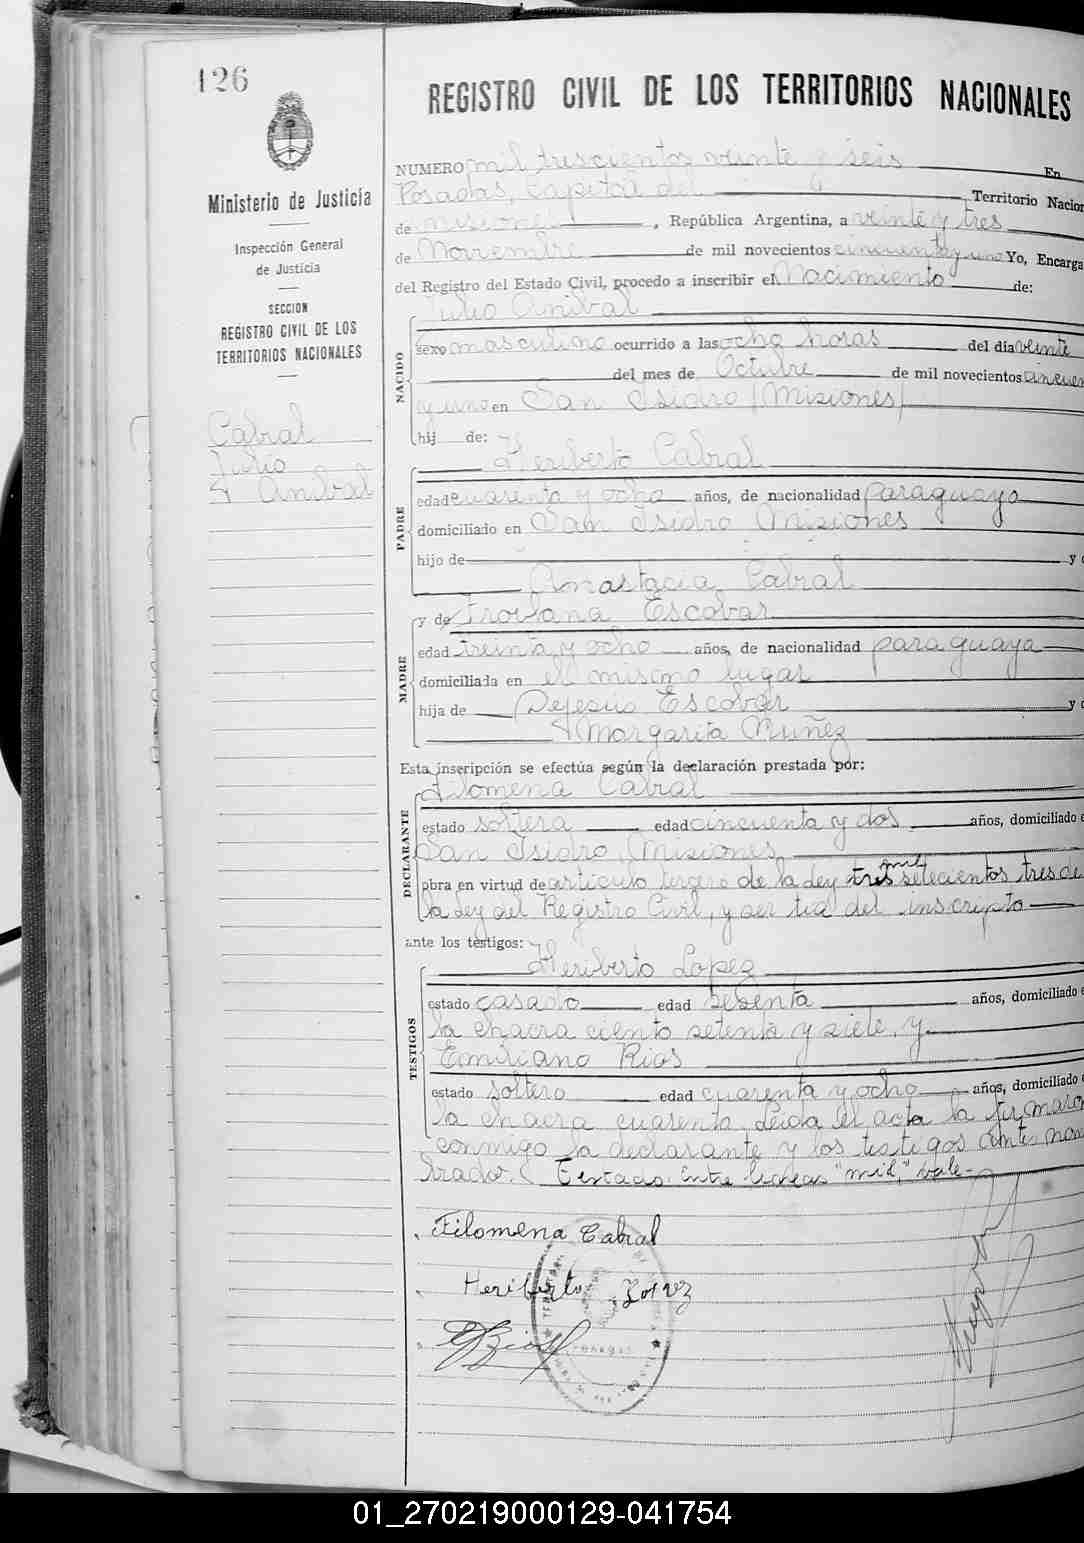 126
REGISTRO CIVIL DE LOS TERRITORIOS NACIONALES
Ministerio de Justicia
Inspección General
de Justicia
SECCION
REGISTRO CIVIL DE LOS
TERRITORIOS NACIONALES
Cabral
Julio
Anibal
NUMERO mil trescientos veinte y seis En
Posadas, Capital del Territorio Nacion
de Misiones, República Argentina, a veinte y tres
de Noviembre de mil novecientos cincuenta y uno Yo, Encarga
del Registro del Estado Civil, procedo a inscribir el Nacimiento de:
NACIDO
Julio Anibal
sexo masculino ocurrido a las ocho horas del día veinte
del mes de Octubre de mil novecientos cincuen
y uno en San Isidro (Misiones)
hij de:
PADRE
Heriberto Cabral
edad cuarenta y ocho años, de nacionalidad paraguaya
domiciliado en San Isidro Misiones
hijo de y d
Anastacia Cabral
MADRE
y de Troblana Escobar
edad treinta y ocho años, de nacionalidad paraguaya
domiciliada en el mismo lugar
hija de Dejesús Escobar y d
Margarita Nuñez
Esta inscripción se efectúa según la declaración prestada por:
DECLARANTE
Filomena Cabral
estado soltera edad cincuenta y dos años, domiciliado e
San Isidro, Misiones
obra en virtud de articulo tercero de la ley tres mil setecientos tres de
la Ley del Registro Civil, y ser tia del inscripto
ante los testigos:
TESTIGOS
Heriberto Lopez
estado casado edad sesenta años, domiciliado e
la chacra ciento setenta y siete, y
Emiliano Rios
estado soltero edad cuarenta y ocho años, domiciliado e
la chacra cuarenta. Leida el acta la firmaron
conmigo la declarante y los testigos antes nom
brados. Testado. Entre lineas "mil," vale-
Filomena Cabral
Heriberto Lopez
ERios
01_270219000129-041754